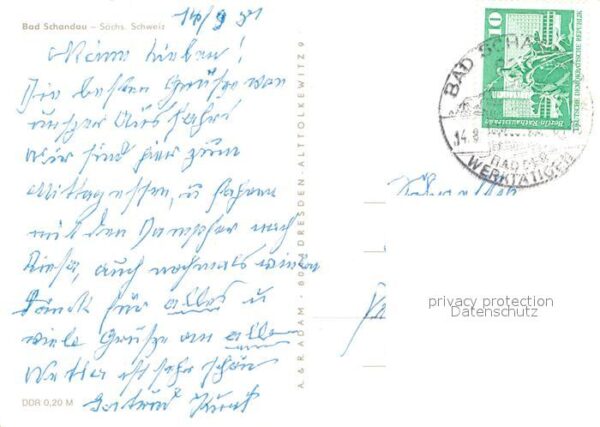 Bad Schandau – Sächs. Schweiz
14/9 81
Meine Lieben!
Die besten Grüße von
unserer Ausfahrt
Wir sind hier zum
Mittagessen, u fahren
mit dem Dampfer nach
Riesa, auch nochmals vielen
Dank für alles u
viele Grüße an alle
Wetter ist sehr schön
Gertrud Kurt
DDR 0,20 M
A. & R. ADAM · DRESDEN - ALTTOLKEWITZ 9
10
DEUTSCHE DEMOKRATISCHE REPUBLIK
Berlin Rathausstraße
BAD SCHAN
14.9
BAD DER
WERKTÄTIGEN
privacy protection
Datenschutz